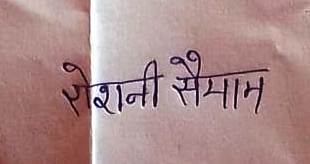 रोशनी सैयाम